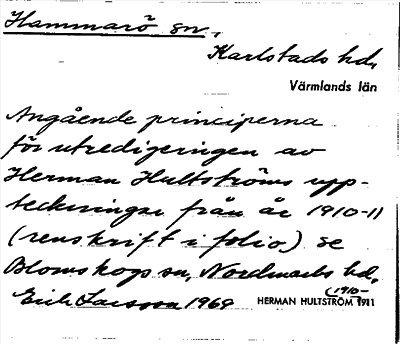 Hammarö sn,
Karlstads hd,
Värmlands län
Angående principerna
för utredigeringen av
Herman Hultströms upp-
teckningar från år 1910-11
(renskrift i folio) se
Blomskogs sn, Nordmarks hd,
Erik Larsson 1969
HERMAN HULTSTRÖM 1910-1911